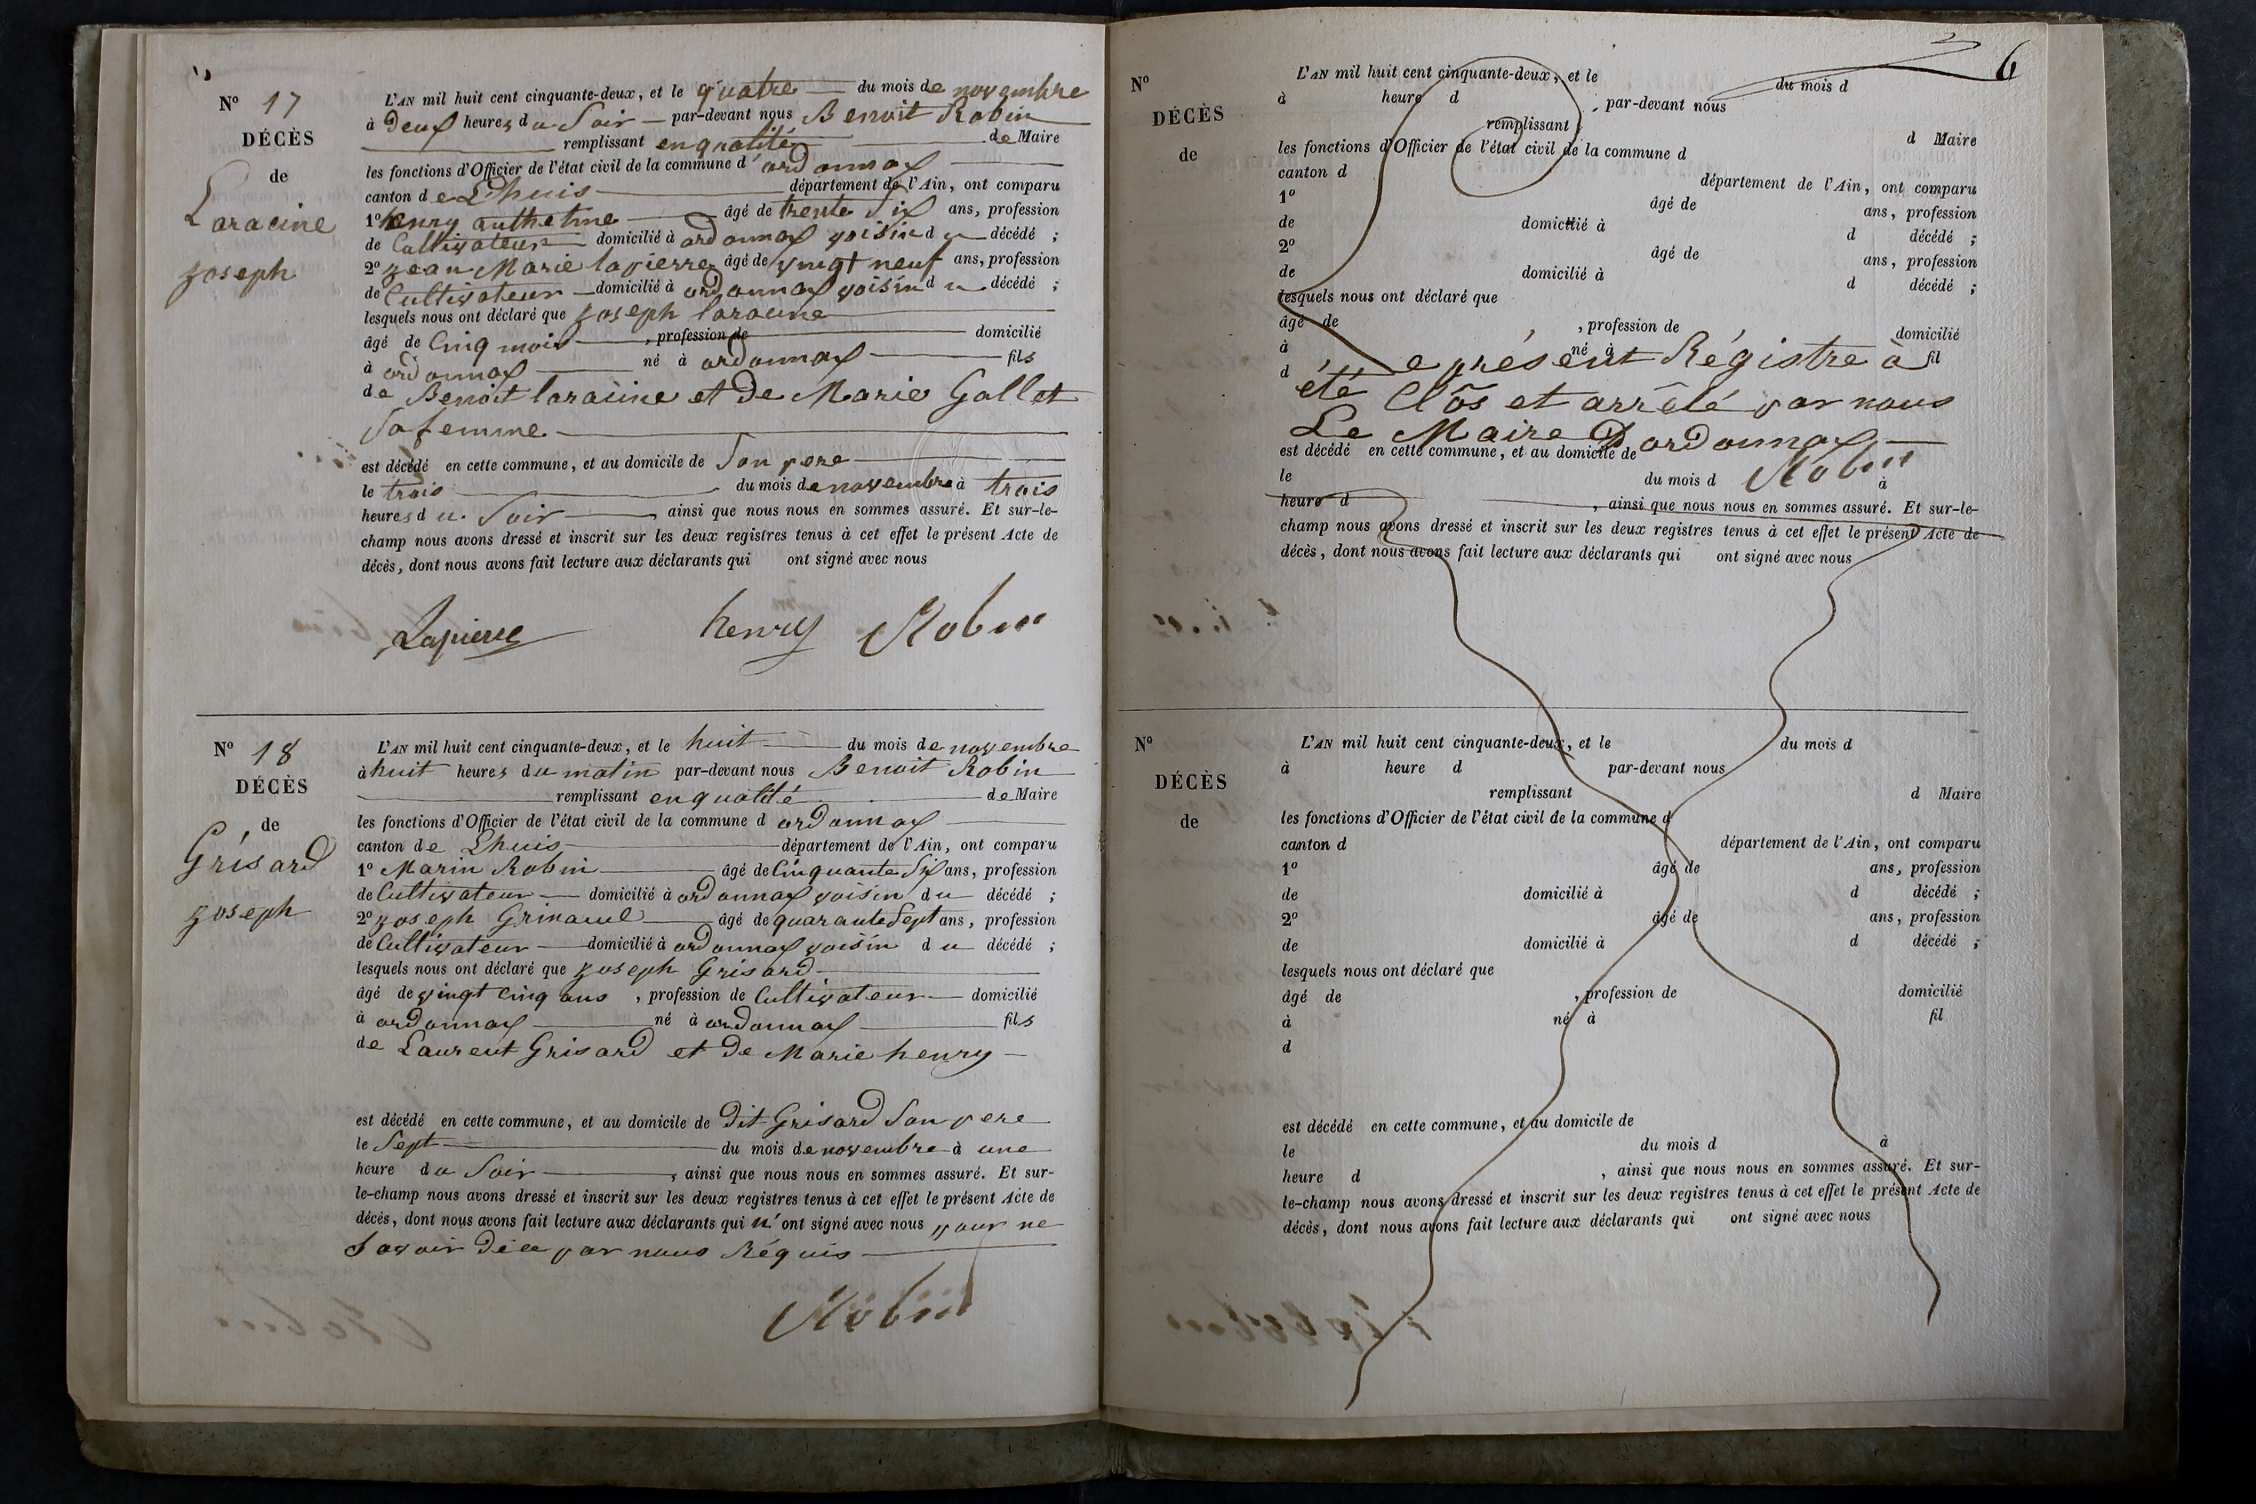 N° 17
DÉCÈS
de
Laracine
Joseph
L'AN mil huit cent cinquante-deux, et le quatre du mois de novembre
à Deux heures du Soir par-devant nous Benoit Robin
remplissant en qualité de Maire
les fonctions d'Officier de l'état civil de la commune d'ordonnax
canton de Lhuis département de l'Ain, ont comparu
1° henry anthelme âgé de trente Six ans, profession
de Cultivateur domicilié à ordonnax voisin du décédé ;
2° jean Marie lapierre âgé de vingt neuf ans, profession
de Cultivateur domicilié à ordonnax voisin du décédé ;
lesquels nous ont déclaré que joseph laracine
âgé de Cinq mois, profession de domicilié
à ordonnax né à ordonnax fils
de Benoit laracine et de Marie Gallet
Sa femme
est décédé en cette commune, et au domicile de Son pere
le trois du mois de novembre à trois
heures du Soir ainsi que nous nous en sommes assuré. Et sur-le-
champ nous avons dressé et inscrit sur les deux registres tenus à cet effet le présent Acte de
décès, dont nous avons fait lecture aux déclarants qui ont signé avec nous
Lapierre henry Robin
N° 18
DÉCÈS
de
Grisard
joseph
L'AN mil huit cent cinquante-deux, et le huit du mois de novembre
à huit heures du matin par-devant nous Benoit Robin
remplissant en qualité de Maire
les fonctions d'Officier de l'état civil de la commune d ordonnax
canton de Lhuis département de l'Ain, ont comparu
1° Marin Robin âgé de Cinquante Six ans, profession
de Cultivateur domicilié à ordonnax voisin du décédé ;
2° joseph âgé de quarante Sept ans, profession
de Cultivateur domicilié à ordonnax voisin du décédé ;
lesquels nous ont déclaré que joseph Grisard
âgé de vingt Cinq ans, profession de Cultivateur domicilié
à ordonnax né à ordonnax fils
de Laurent Grisard et de Marie henry
est décédé en cette commune, et au domicile de Dit Grisard Son pere
le Sept du mois de novembre à une
heure du Soir, ainsi que nous nous en sommes assuré. Et sur-
le-champ nous avons dressé et inscrit sur les deux registres tenus à cet effet le présent Acte de
décès, dont nous avons fait lecture aux déclarants qui n'ont signé avec nous pour ne
Savoir De ce par nous Réquis
Robin
6
N°
DÉCÈS
de
L'AN mil huit cent cinquante-deux, et le du mois d
à heure d, par-devant nous
remplissant d Maire
les fonctions d'Officier de l'état civil de la commune d
canton d département de l'Ain, ont comparu
1° âgé de ans, profession
de domicilié à d décédé ;
2° âgé de ans, profession
de domicilié à d décédé ;
lesquels nous ont déclaré que
âgé de, profession de domicilié
à né à fil
d
Le présent Régistre à
été Clôs et arrêté par nous
Le Maire D'ordonnax
Robin
est décédé en cette commune, et au domicile de
le du mois d à
heure d, ainsi que nous nous en sommes assuré. Et sur-le-
champ nous avons dressé et inscrit sur les deux registres tenus à cet effet le présent Acte de
décès, dont nous avons fait lecture aux déclarants qui ont signé avec nous
N°
DÉCÈS
de
L'AN mil huit cent cinquante-deux, et le du mois d
à heure d par-devant nous
remplissant d Maire
les fonctions d'Officier de l'état civil de la commune d
canton d département de l'Ain, ont comparu
1° âgé de ans, profession
de domicilié à d décédé ;
2° âgé de ans, profession
de domicilié à d décédé ;
lesquels nous ont déclaré que
âgé de, profession de domicilié
à né à fil
d
est décédé en cette commune, et au domicile de
le du mois d à
heure d, ainsi que nous nous en sommes assuré. Et sur-
le-champ nous avons dressé et inscrit sur les deux registres tenus à cet effet le présent Acte de
décès, dont nous avons fait lecture aux déclarants qui ont signé avec nous